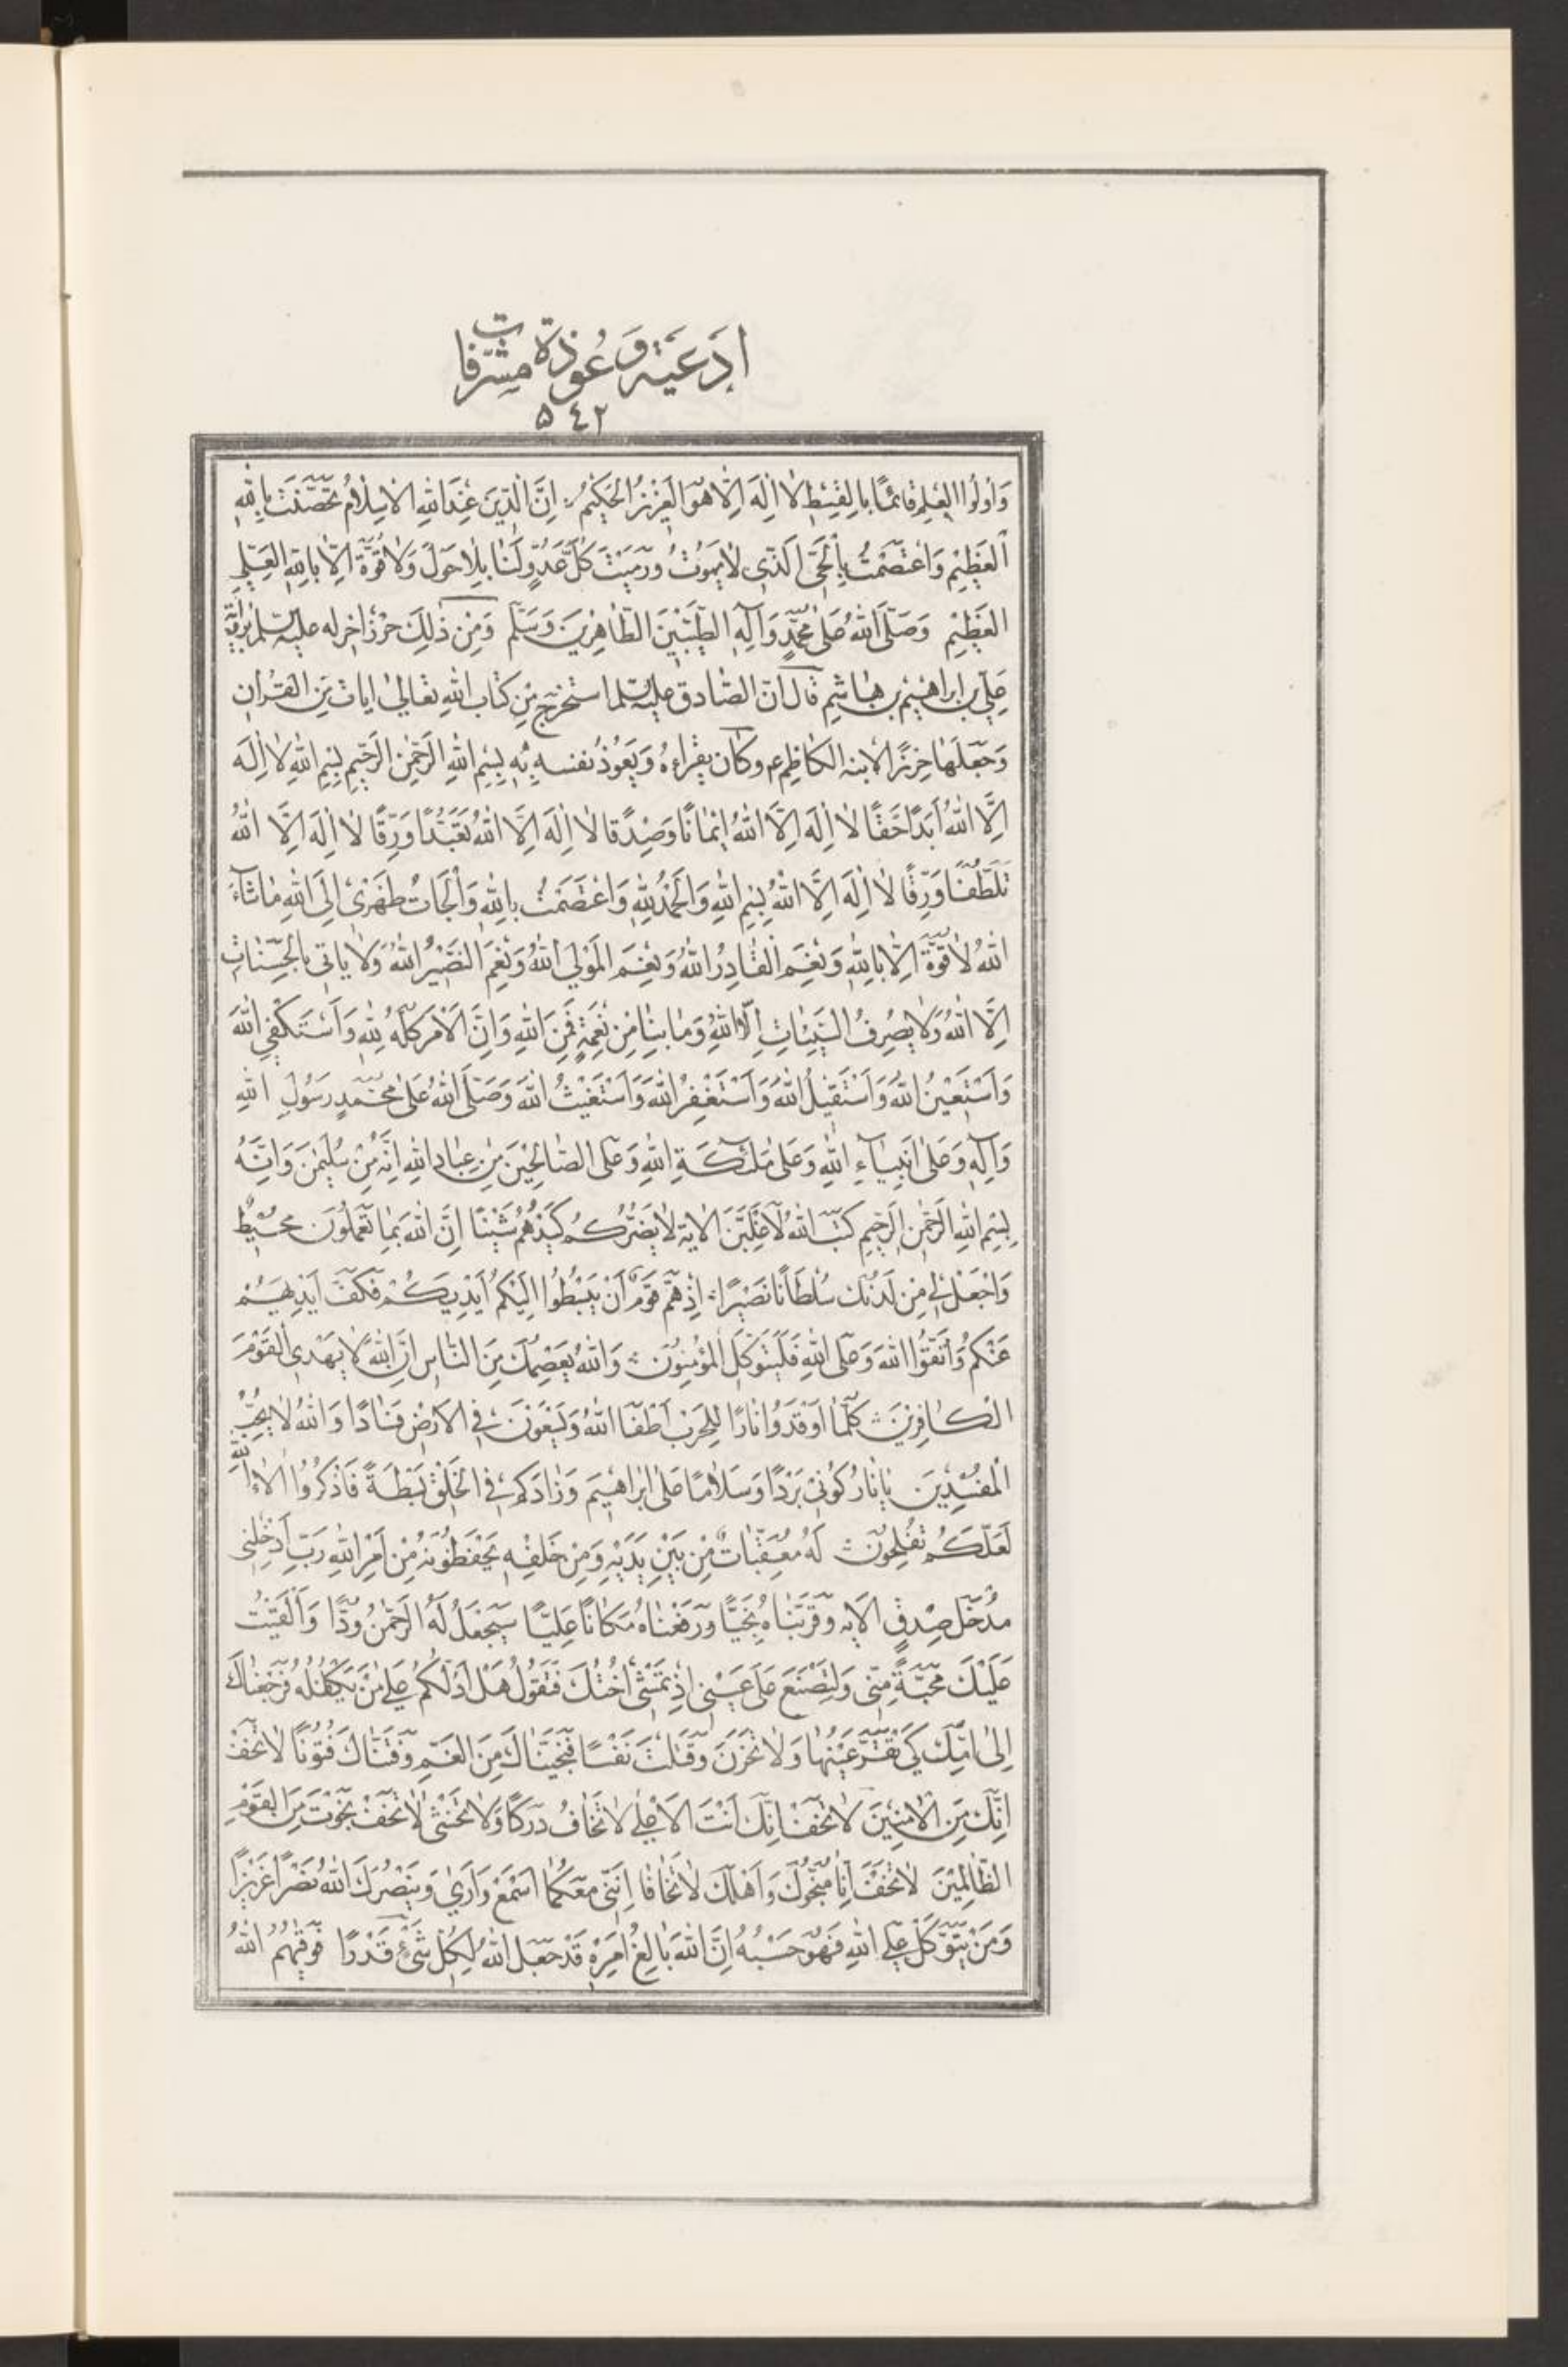 ادعیة و عوذة متفرقات
٥٤٢
وَأُولُوا الْعِلْمِ قَائِمًا بِالْقِسْطِ لَا إِلَهَ إِلَّا هُوَ الْعَزِيزُ الْحَكِيمُ إِنَّ الدِّينَ عِنْدَ اللهِ الْإِسْلَامُ تَحَصَّنْتُ بِاللهِ
الْعَظِيمِ وَاعْتَصَمْتُ بِالْحَيِّ الَّذِي لَا يَمُوتُ وَرَمَيْتُ كُلَّ عَدُوٍّ لَنَا بِلَا حَوْلَ وَلَا قُوَّةَ إِلَّا بِاللهِ الْعَلِيِّ
الْعَظِيمِ وَصَلَّى اللهُ عَلَى مُحَمَّدٍ وَآلِهِ الطَّيِّبِينَ الطَّاهِرِينَ وَسَلَّمَ وَمِنْ ذَلِكَ حِرْزٌ اخر له علیه السلم بروایة
علي بن ابراهيم بن هاشم قال ان الصادق علیه السلم استخرج من كتاب الله تعالى ايات من القران
وَجَعَلَهَا حِرْزًا لابنه الكاظم ع وكان يقراءه وَيَعُوذُ نفسه به بِسْمِ اللهِ الرَّحْمٰنِ الرَّحِيمِ بِسْمِ اللهِ لَا إِلَهَ
إِلَّا اللهُ أَبَدًا حَقًّا لَا إِلَهَ إِلَّا اللهُ إِيمَانًا وَصِدْقًا لَا إِلَهَ إِلَّا اللهُ تَعَبُّدًا وَرِقًّا لَا إِلَهَ إِلَّا اللهُ
تَلَطُّفًا وَرِفْقًا لَا إِلَهَ إِلَّا اللهُ بِسْمِ اللهِ وَالْحَمْدُ لِلهِ وَاعْتَصَمْتُ بِاللهِ وَأَلْجَأْتُ ظَهْرِي إِلَى اللهِ مَا شَاءَ
اللهُ لَا قُوَّةَ إِلَّا بِاللهِ وَنِعْمَ الْقَادِرُ اللهُ وَنِعْمَ الْمَوْلَى اللهُ وَنِعْمَ النَّصِيرُ اللهُ وَلَا يَاتِي بِالْحَسَنَاتِ
إِلَّا اللهُ وَلَا يَصْرِفُ السَّيِّئَاتِ إِلَّا اللهُ وَمَا بِنَا مِنْ نِعْمَةٍ فَمِنَ اللهِ وَإِنَّ الْأَمْرَ كُلَّهُ لِلهِ وَأَسْتَكْفِي اللهَ
وَأَسْتَعِينُ اللهَ وَأَسْتَقِيلُ اللهَ وَأَسْتَغْفِرُ اللهَ وَأَسْتَغِيثُ اللهَ وَصَلَّى اللهُ عَلَى مُحَمَّدٍ رَسُولِ اللهِ
وَآلِهِ وَعَلَى أَنْبِيَاءِ اللهِ وَعَلَى مَلَئِكَةِ اللهِ وَعَلَى الصَّالِحِينَ مِنْ عِبَادِ اللهِ إِنَّهُ مِنْ سُلَيْمٰنَ وَإِنَّهُ
بِسْمِ اللهِ الرَّحْمٰنِ الرَّحِيمِ كَتَبَ اللهُ لَأَغْلِبَنَّ الاية لَا يَضُرُّكُمْ كَيْدُهُمْ شَيْئًا إِنَّ اللهَ بِمَا تَعْمَلُونَ مُحِيطٌ
وَاجْعَلْ لِي مِنْ لَدُنْكَ سُلْطَانًا نَصِيرًا إِذْ هَمَّ قَوْمٌ أَنْ يَبْسُطُوا إِلَيْكُمْ أَيْدِيَكُمْ فَكَفَّ أَيْدِيَهُمْ
عَنْكُمْ وَاتَّقُوا اللهَ وَعَلَى اللهِ فَلْيَتَوَكَّلِ الْمُؤْمِنُونَ وَاللهُ يَعْصِمُكَ مِنَ النَّاسِ إِنَّ اللهَ لَا يَهْدِي الْقَوْمَ
الْكَافِرِينَ كُلَّمَا أَوْقَدُوا نَارًا لِلْحَرْبِ أَطْفَأَ اللهُ وَيَسْعَوْنَ فِي الْأَرْضِ فَسَادًا وَاللهُ لَا يُحِبُّ
الْمُفْسِدِينَ يَا نَارُ كُونِي بَرْدًا وَسَلَامًا عَلَى إِبْرَاهِيمَ وَزَادَكُمْ فِي الْخَلْقِ بَسْطَةً فَاذْكُرُوا آلَاءَ اللهِ
لَعَلَّكُمْ تُفْلِحُونَ لَهُ مُعَقِّبَاتٌ مِنْ بَيْنِ يَدَيْهِ وَمِنْ خَلْفِهِ يَحْفَظُونَهُ مِنْ أَمْرِ اللهِ رَبِّ أَدْخِلْنِي
مُدْخَلَ صِدْقٍ الایه وَقَرَّبْنَاهُ نَجِيًّا وَرَفَعْنَاهُ مَكَانًا عَلِيًّا سَيَجْعَلُ لَهُ الرَّحْمٰنُ وُدًّا وَأَلْقَيْتُ
عَلَيْكَ مَحَبَّةً مِنِّي وَلِتُصْنَعَ عَلَى عَيْنِي إِذْ تَمْشِي أُخْتُكَ فَتَقُولُ هَلْ أَدُلُّكُمْ عَلَى مَنْ يَكْفُلُهُ فَرَجَعْنَاكَ
إِلَى أُمِّكَ كَيْ تَقَرَّ عَيْنُهَا وَلَا تَحْزَنَ وَقَتَلْتَ نَفْسًا فَنَجَّيْنَاكَ مِنَ الْغَمِّ وَفَتَنَّاكَ فُتُونًا لَا تَخَفْ
إِنَّكَ مِنَ الْآمِنِينَ لَا تَخَفْ إِنَّكَ أَنْتَ الْأَعْلَى لَا تَخَافُ دَرَكًا وَلَا تَخْشَى لَا تَخَفْ نَجَوْتَ مِنَ الْقَوْمِ
الظَّالِمِينَ لَا تَخَفْ إِنَّا مُنَجُّوكَ وَأَهْلَكَ لَا تَخَافَا إِنَّنِي مَعَكُمَا أَسْمَعُ وَأَرَى وَيَنْصُرَكَ اللهُ نَصْرًا عَزِيزًا
وَمَنْ يَتَوَكَّلْ عَلَى اللهِ فَهُوَ حَسْبُهُ إِنَّ اللهَ بَالِغُ أَمْرِهِ قَدْ جَعَلَ اللهُ لِكُلِّ شَيْءٍ قَدْرًا فَوَقٰهُمُ اللهُ